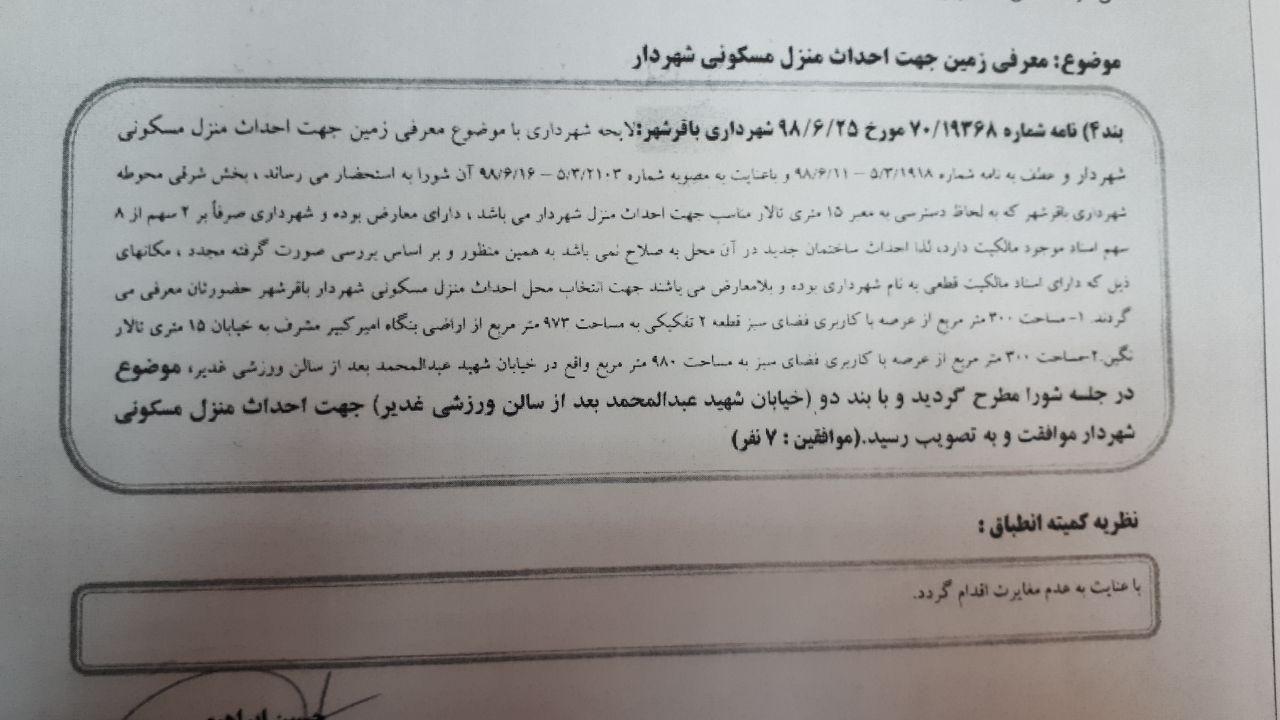 موضوع: معرفی زمین جهت احداث منزل مسکونی شهردار
بند۴) نامه شماره ۷۰/۱۹۳۶۸ مورخ ۹۸/۶/۲۵ شهرداری باقرشهر:لایحه شهرداری با موضوع معرفی زمین جهت احداث منزل مسکونی
شهردار و عطف به نامه شماره ۵/۳/۱۹۱۸ – ۹۸/۶/۱۱ و باعنایت به مصوبه شماره ۵/۳/۲۱۰۳ – ۹۸/۶/۱۶ آن شورا به استحضار می رساند ، بخش شرقی محوطه
شهرداری باقرشهر که به لحاظ دسترسی به معبر ۱۵ متری تالار مناسب جهت احداث منزل شهردار می باشد ، دارای معارض بوده و شهرداری صرفاً بر ۲ سهم از ۸
سهم اسناد موجود مالکیت دارد، لذا احداث ساختمان جدید در آن محل به صلاح نمی باشد به همین منظور و بر اساس بررسی صورت گرفته مجدد ، مکانهای
ذیل که دارای اسناد مالکیت قطعی به نام شهرداری بوده و بلامعارض می باشند جهت انتخاب محل احداث منزل مسکونی شهردار باقرشهر حضورتان معرفی می
گردند. ۱- مساحت ۳۰۰ متر مربع از عرصه با کاربری فضای سبز قطعه ۲ تفکیکی به مساحت ۹۷۳ متر مربع از اراضی بنگاه امیرکبیر مشرف به خیابان ۱۵ متری تالار
نگین.۲-مساحت ۳۰۰ متر مربع از عرصه با کاربری فضای سبز به مساحت ۹۸۰ متر مربع واقع در خیابان شهید عبدالمحمد بعد از سالن ورزشی غدیر، موضوع
در جلسه شورا مطرح گردید و با بند دو (خیابان شهید عبدالمحمد بعد از سالن ورزشی غدیر) جهت احداث منزل مسکونی
شهردار موافقت و به تصویب رسید.(موافقین : ۷ نفر)
نظریه کمیته انطباق :
با عنایت به عدم مغایرت اقدام گردد.